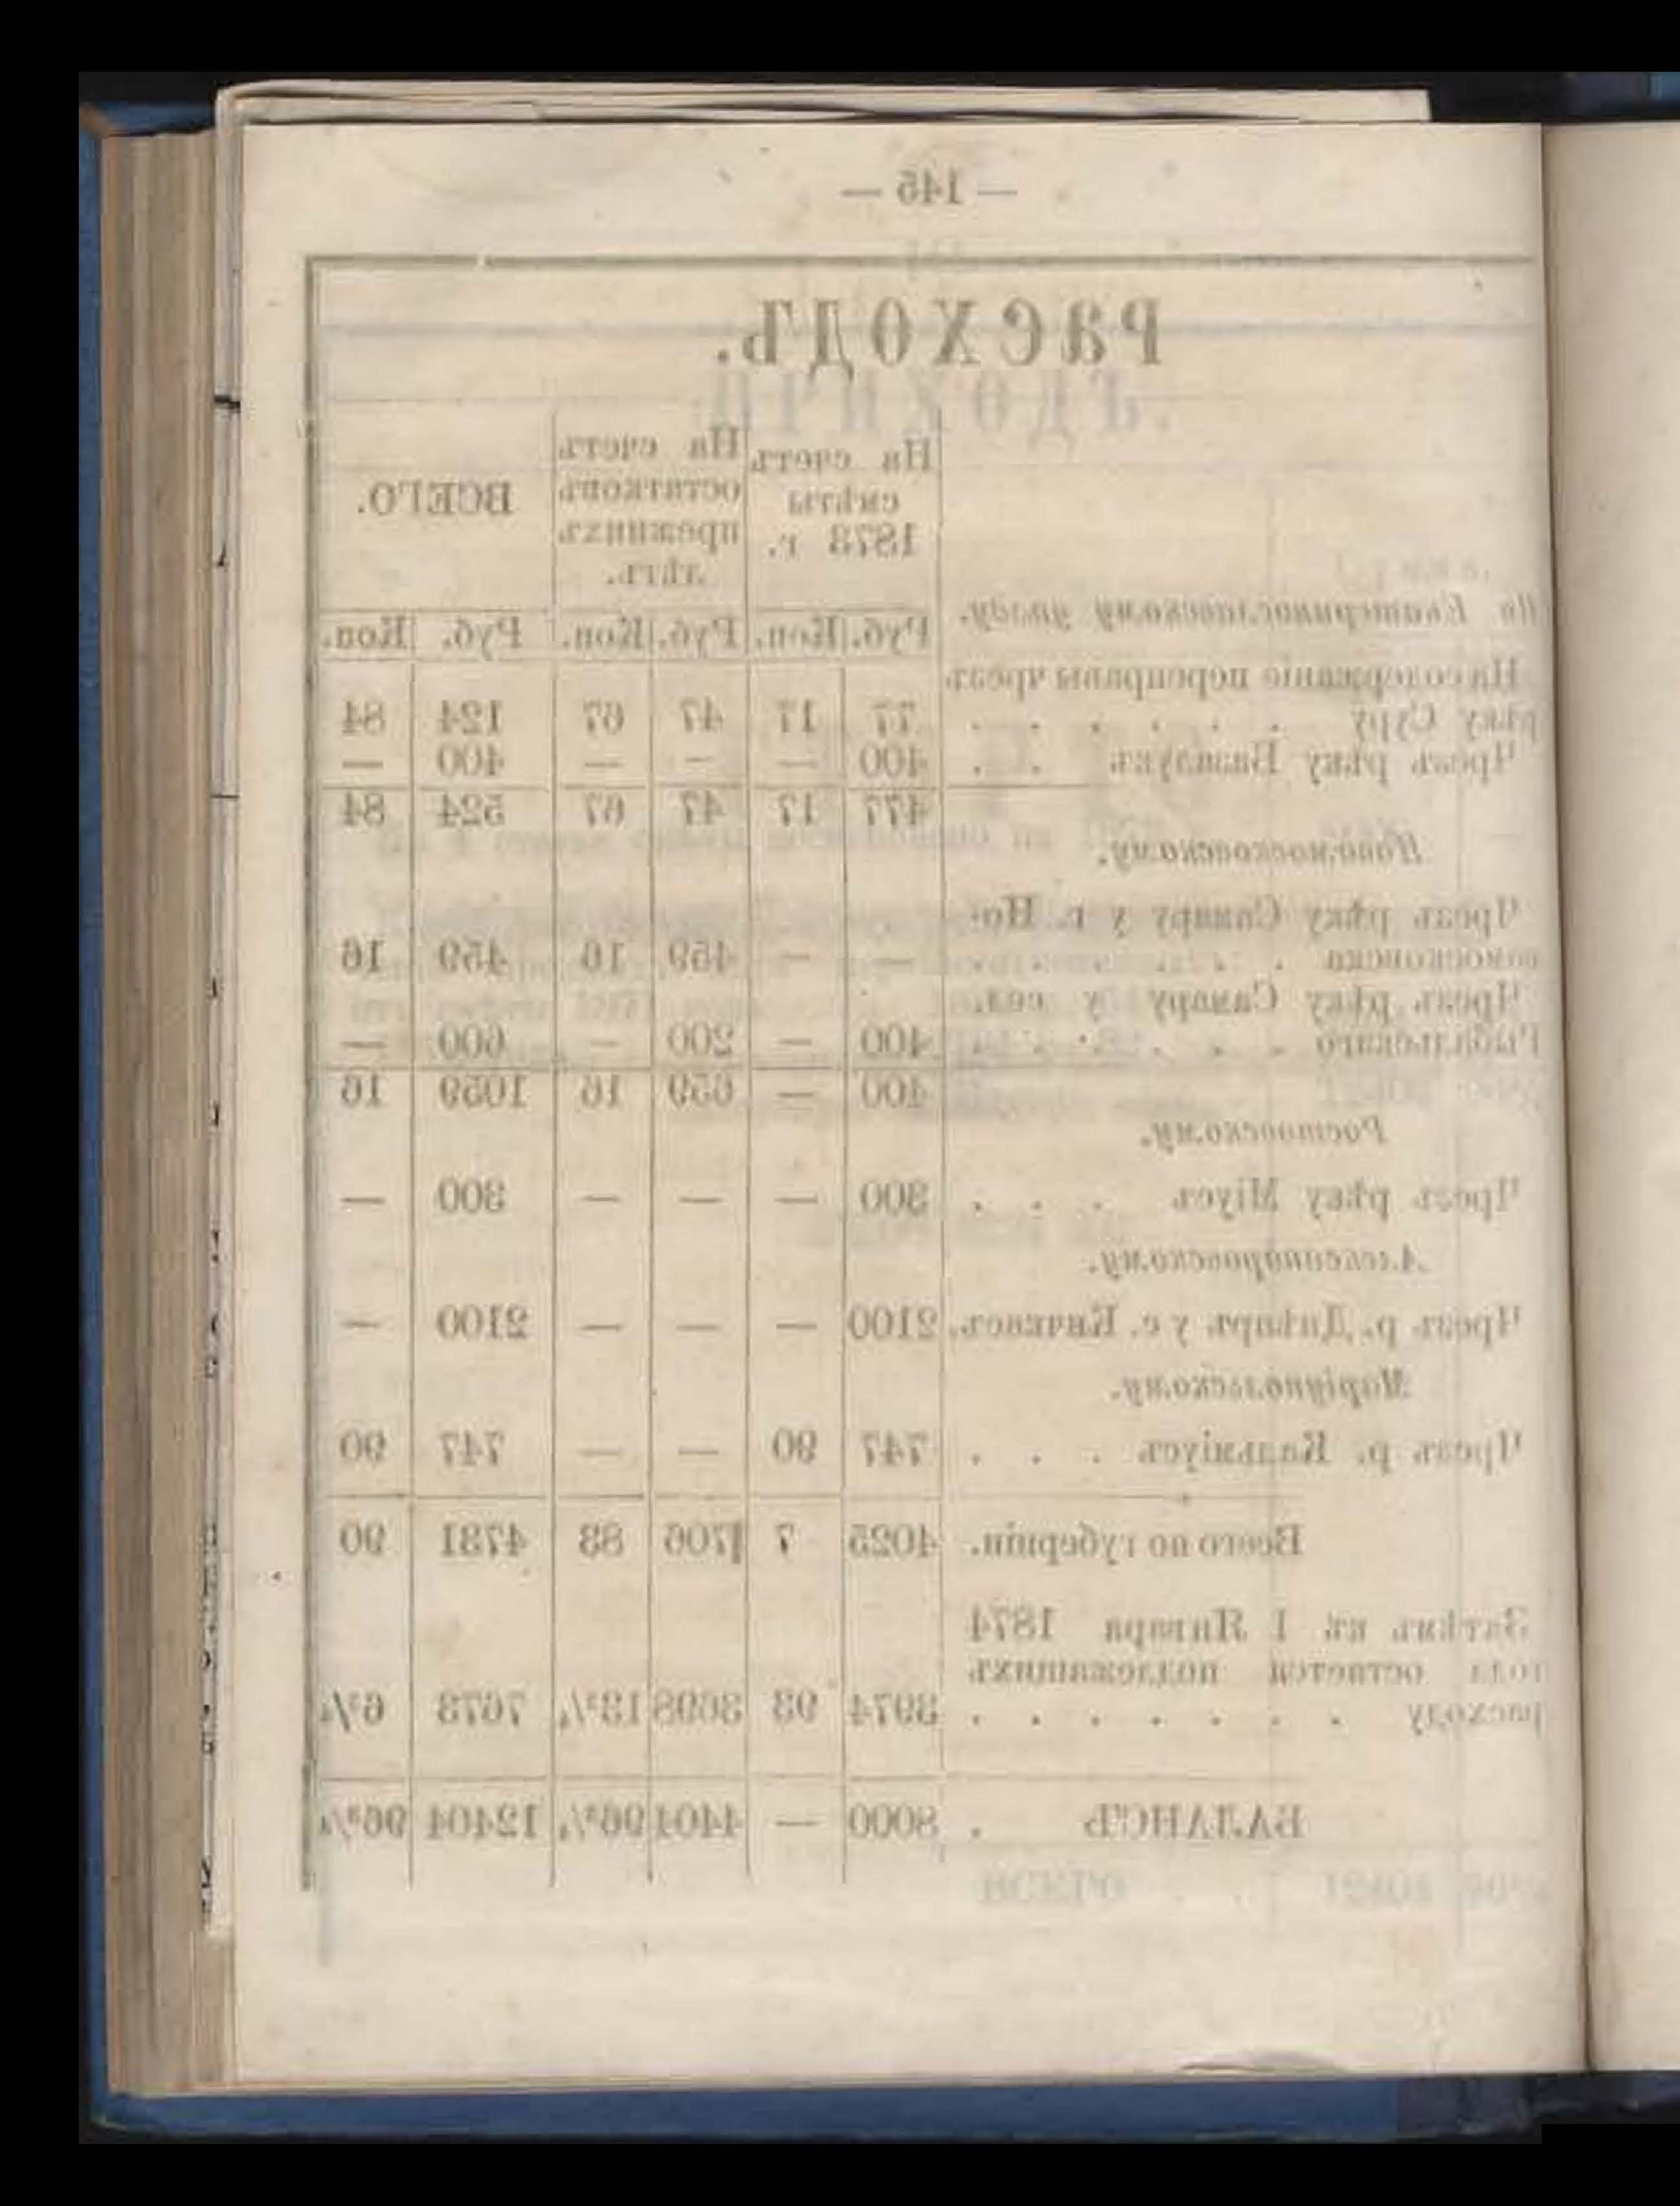 — 145 —
РАСХОДЪ.
На счетъ смѣты 1873 г. | На счетъ остатковъ прежнихъ лѣтъ. | ВСЕГО.
Руб. Коп. Руб. Коп. Руб. Коп.
По Екатеринославскому уѣзду.
На содержаніе переправы чрезъ
рѣку Суру . . . . . . 77 17 47 67 124 84
Чрезъ рѣку Базавлукъ . . 400 — — — 400 —
477 17 47 67 524 84
Новомосковскому.
Чрезъ рѣку Самару у г. Но-
вомосковска . . . . . . — — 459 16 459 16
Чрезъ рѣку Самару у сел.
Рыбальскаго . . . . . . 400 — 200 — 600 —
400 — 659 16 1059 16
Ростовскому.
Чрезъ рѣку Міусъ . . . 300 — — — 300 —
Александровскому.
Чрезъ р. Днѣпръ у с. Кичкасъ. 2100 — — — 2100 —
Маріупольскому.
Чрезъ р. Кальміусъ . . . 747 90 — — 747 90
Всего по губерніи. 4025 7 706 83 4731 90
Затѣмъ къ 1 Января 1874
года остается подлежащихъ
расходу . . . . . . . 3974 93 3698 13¾ 7673 6¾
БАЛАНСЪ . 8000 — 4404 96¾ 12404 96¾